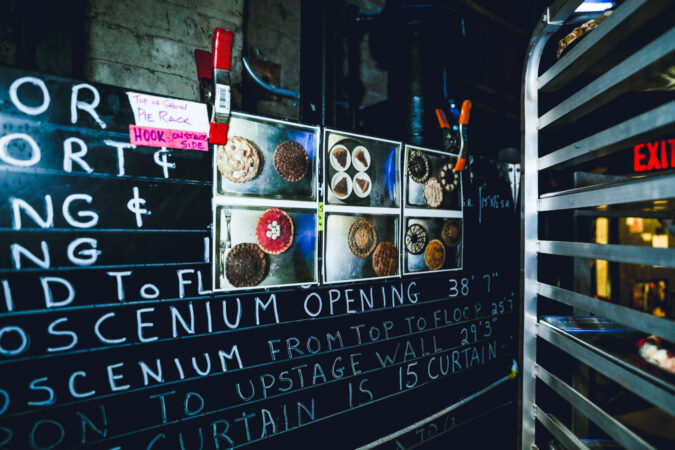 TOP OF SHOW
PIE RACK
HOOK
SIDE
EXIT
OR
ORT &
NG &
NG
ID TO FL
OSCENIUM OPENING 38'7"
OSCENIUM FROM TOP TO FLOOR
ON TO UPSTAGE WALL 29'3"
CURTAIN IS 15 CURTAIN